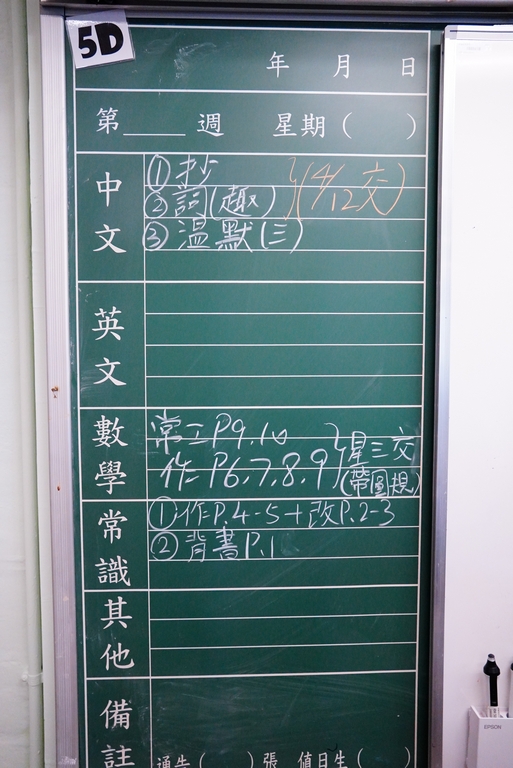 5D
年 月 日
第____週 星期( )
中文
①抄
②詞(趣) }(4/12交)
③溫默(三)
英文
數學
常工P9.10
作P6.7.8.9 }星三交
(帶圓規)
常識
①作P.4-5+改P.2-3
②背書P.1
其他
備註
通告( )張 值日生( )
EPSON